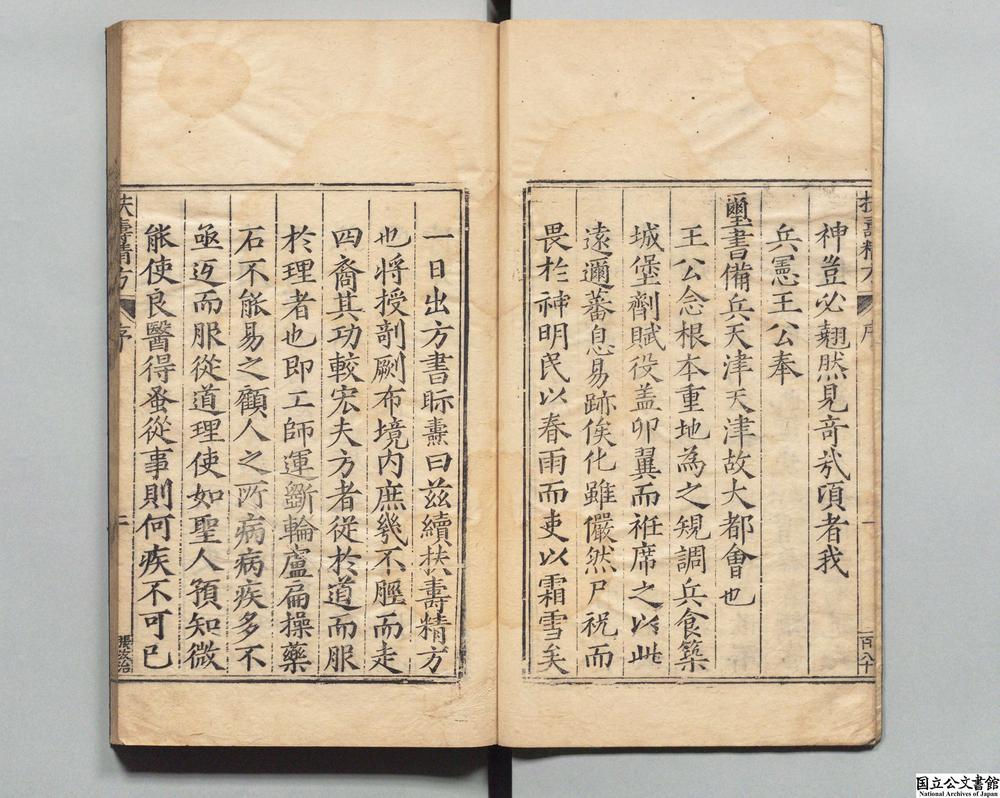 神豈必翹然見奇哉頃者我
兵憲王公奉
璽書備兵天津天津故大都會也
王公念根本重地為之規調兵食築
城堡劑賦役盖卵翼而袵席之以此
遠邇蕃息易跡俟化雖儼然尸祝而
畏於神明民以春雨而吏以霜雪矣
扶壽精方
序
一
百八十
一日出方書眎燾曰兹續扶壽精方
也將授剞劂布境内庶幾不脛而走
四裔其功較宏夫方者從於道而服
於理者也即工師運斵輪盧扁操藥
石不能易之顧人之所病病疾多不
亟迓而服從道理使如聖人預知微
能使良醫得蚤從事則何疾不可已
扶壽精方
序
二
国立公文書館
National Archives of Japan